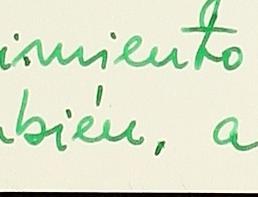 imiento
bién, a